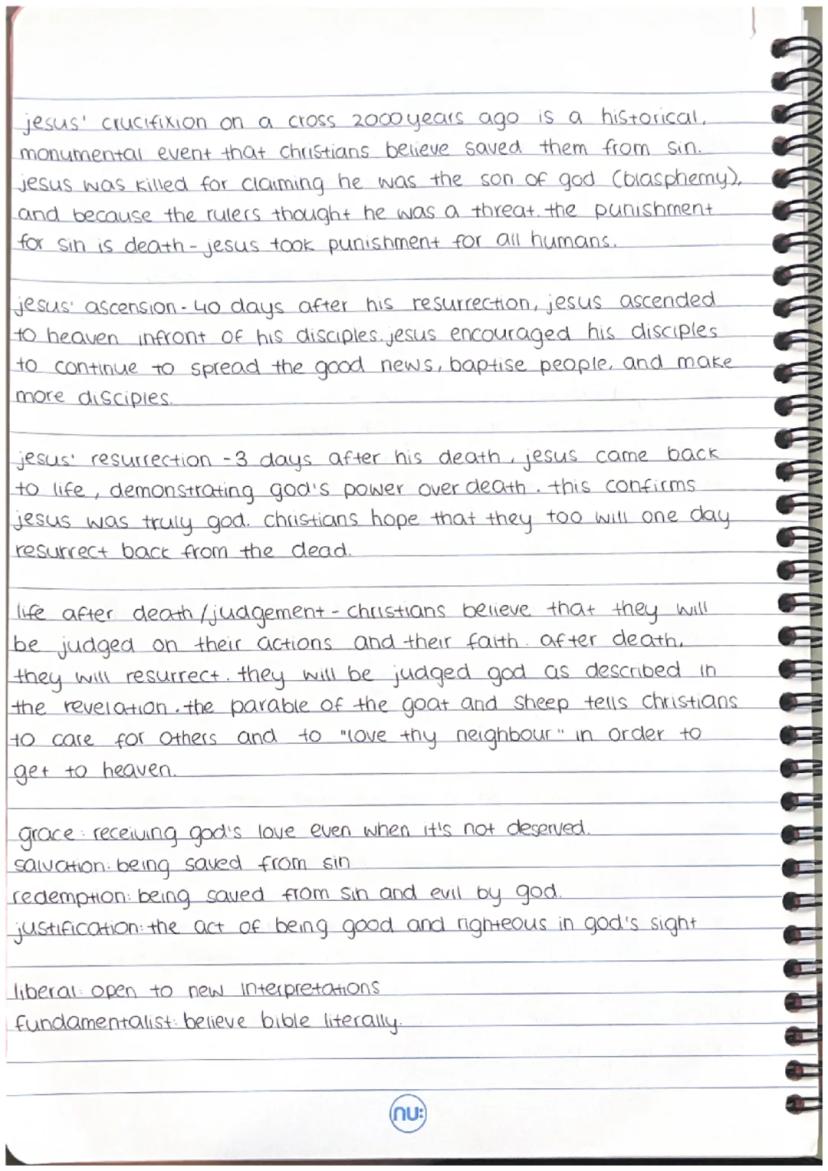 jesus' crucifixion on a cross 2000 years ago is a historical,
monumental event that christians believe saved them from sin.
jesus was killed for claiming he was the son of god (blasphemy),
and because the rulers thought he was a threat. the punishment
for sin is death - jesus took punishment for all humans.
jesus' ascension - 40 days after his resurrection, jesus ascended
to heaven infront of his disciples. jesus encouraged his disciples
to continue to spread the good news, baptise people, and make
more disciples.
jesus' resurrection - 3 days after his death, jesus came back
to life, demonstrating god's power over death. this confirms
jesus was truly god. christians hope that they too will one day
resurrect back from the dead.
life after death/judgement - christians believe that they will
be judged on their actions and their faith. after death,
they will resurrect. they will be judged god as described in
the revelation. the parable of the goat and sheep tells christians
to care for others and to "love thy neighbour" in order to
get to heaven.
grace: receiving god's love even when it's not deserved.
salvation: being saved from sin
redemption: being saved from sin and evil by god.
justification: the act of being good and righteous in god's sight
liberal: open to new interpretations
fundamentalist: believe bible literally.
nu: